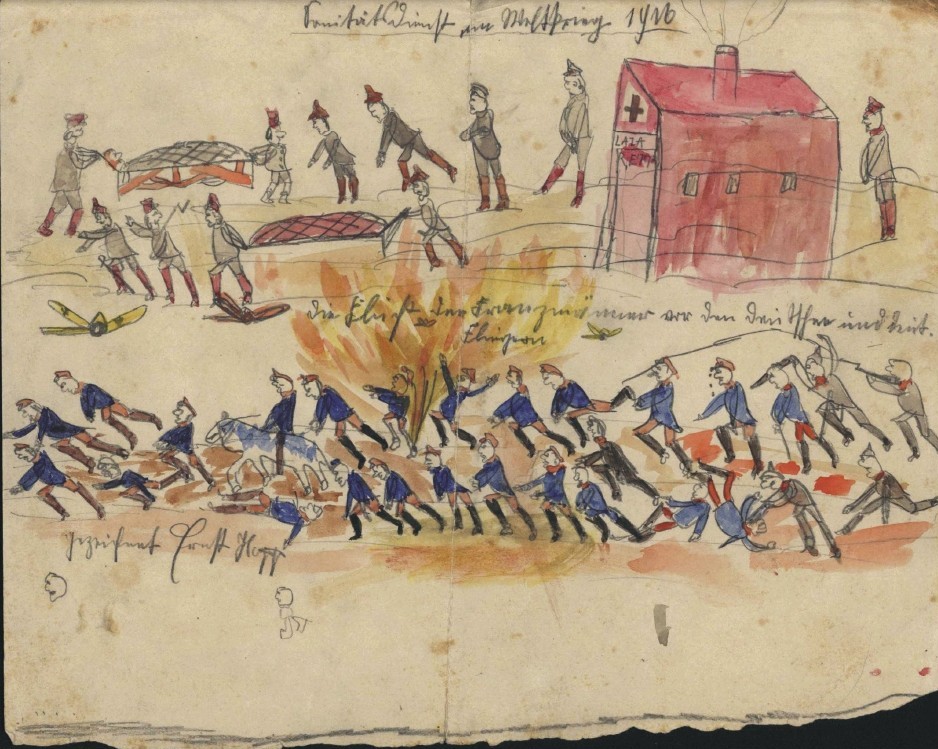 Sanitätsdienst im Weltkrieg 1916
LAZA
RETT
die Flucht der Franzmänner vor den deutschen und deut.
Fliegern
gezeichnet Ernst